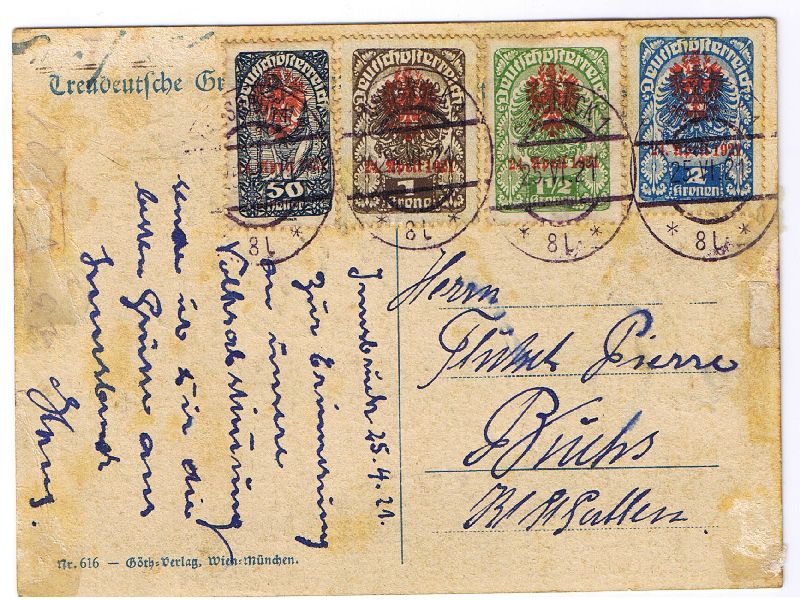 Treudeutsche Gr
Deutschösterreich
24. April 1921
50
Deutschösterreich
24. April 1921
1
Kronen
Deutschösterreich
24. April 1921
Kronen
Deutschösterreich
24. April 1921
2
Kronen
25.VI.21
* 8L *
* 8L *
* 8L *
Innsbruck 25.4.21.
Zur Erinnerung
an unsere
Volksabstimmung
sende ich dir die
besten Grüsse aus
Innsbruck
Herrn
Pierre
Buchs
Kt St Gallen.
Nr. 616 — Göth-Verlag, Wien-München.